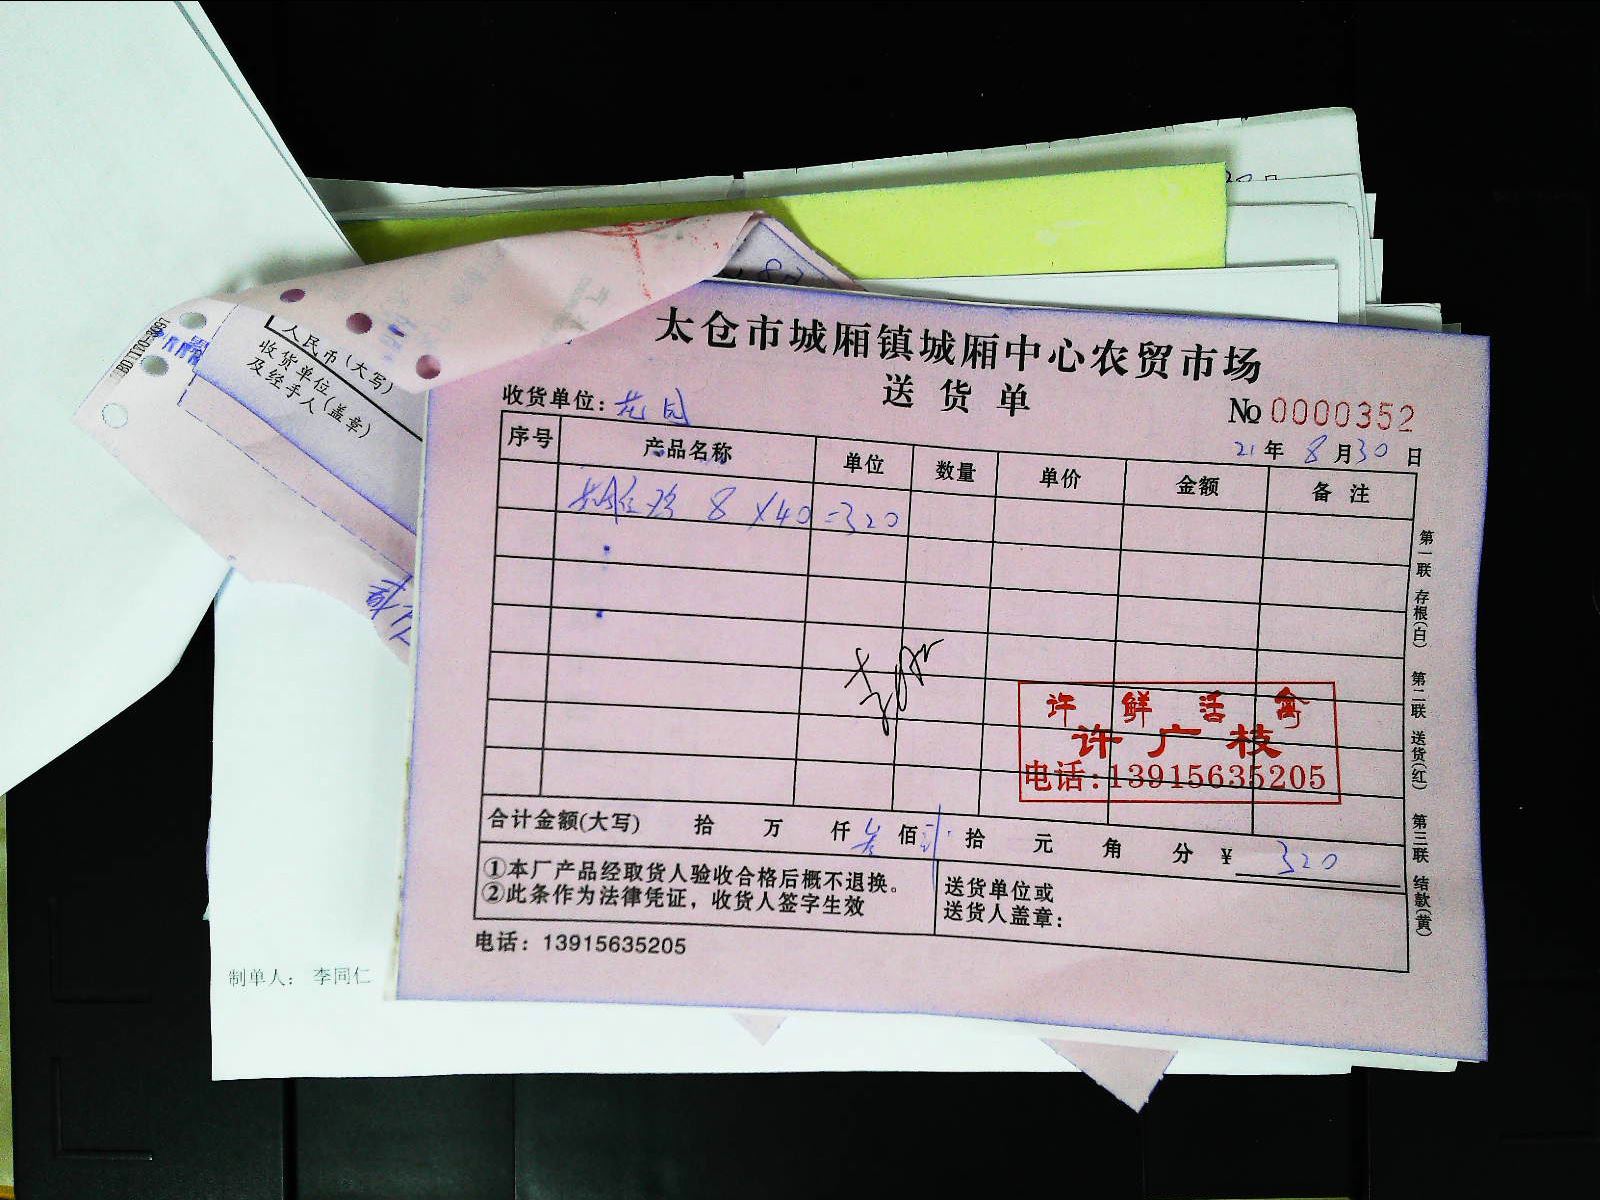 人民币(大写)
收货单位
及经手人(盖章)
太仓市城厢镇城厢中心农贸市场
送货单
收货单位：花园
No 0000352
21年 8月30日
序号 产品名称 单位 数量 单价 金额 备注
8 X40 =320
许鲜活禽
许广枝
电话:13915635205
合计金额(大写) 拾 万 仟 叁佰 贰拾 元 角 分 ¥ 320
①本厂产品经取货人验收合格后概不退换。
②此条作为法律凭证，收货人签字生效
送货单位或
送货人盖章：
电话：13915635205
第一联 存根(白) 第二联 送货(红) 第三联 结款(黄)
制单人： 李同仁